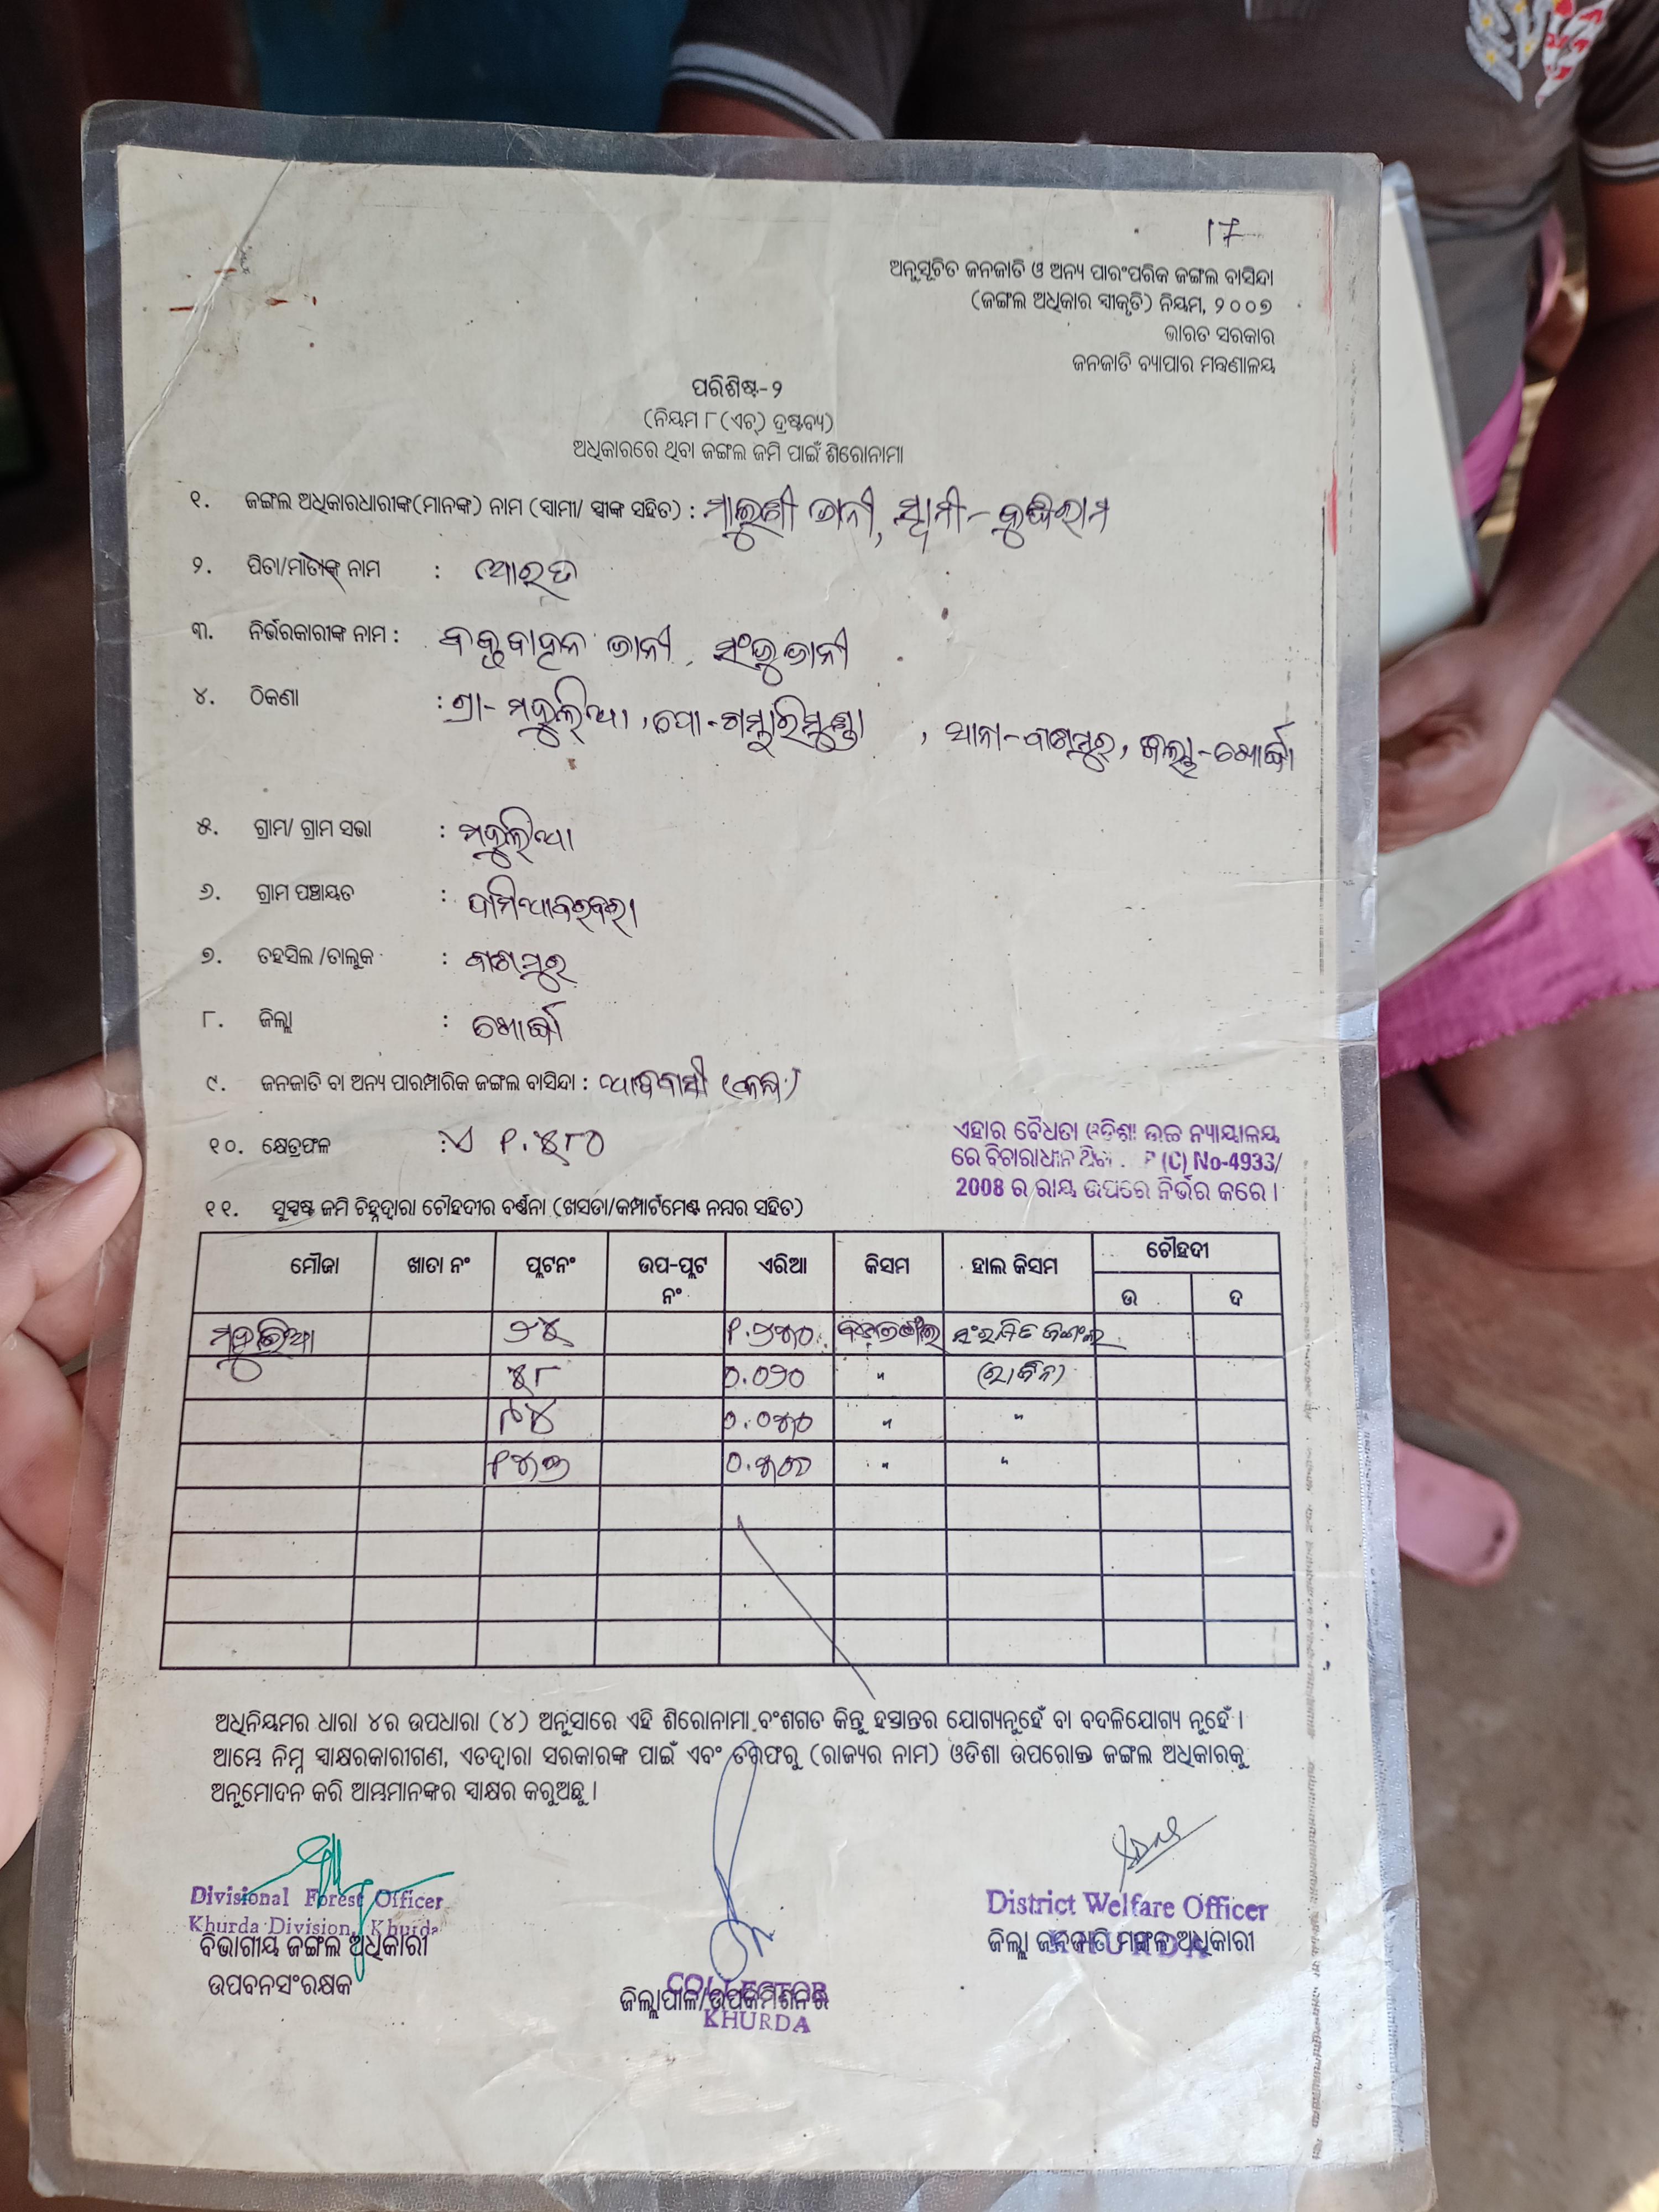 17
ଅନୁସୂଚିତ ଜନଜାତି ଓ ଅନ୍ୟ ପାରଂପରିକ ଜଙ୍ଗଲ ବାସିନ୍ଦା
(ଜଙ୍ଗଲ ଅଧିକାର ସ୍ୱୀକୃତି) ନିୟମ, ୨୦୦୭
ଭାରତ ସରକାର
ଜନଜାତି ବ୍ୟାପାର ମନ୍ତ୍ରଣାଳୟ
ପରିଶିଷ୍ଟ-୨
(ନିୟମ ୮(ଏଚ୍) ଦ୍ରଷ୍ଟବ୍ୟ)
ଅଧିକାରରେ ଥିବା ଜଙ୍ଗଲ ଜମି ପାଇଁ ଶିରୋନାମା
୧. ଜଙ୍ଗଲ ଅଧିକାରଧାରୀଙ୍କ(ମାନଙ୍କ) ନାମ (ସ୍ୱାମୀ/ ସ୍ତ୍ରୀଙ୍କ ସହିତ) : ଜାନୀ, ସ୍ୱାମୀ-
୨. ପିତା/ମାତାଙ୍କ୍ ନାମ :
୩. ନିର୍ଭରକାରୀଙ୍କ ନାମ : ଜାନୀ ଜାନୀ
୪. ଠିକଣା : ଗ୍ରା- ମହୁଲିଆ, ପୋ- , ଥାନା-ବାଣପୁର, ଜିଲ୍ଲା-ଖୋର୍ଦ୍ଧା
୫. ଗ୍ରାମ/ ଗ୍ରାମ ସଭା : ମହୁଲିଆ
୬. ଗ୍ରାମ ପଞ୍ଚାୟତ : ଦାମିଆବରବରା
୭. ତହସିଲ /ତାଲୁକ : ବାଣପୁର
୮. ଜିଲ୍ଲା : ଖୋର୍ଦ୍ଧା
୯. ଜନଜାତି ବା ଅନ୍ୟ ପାରମ୍ପାରିକ ଜଙ୍ଗଲ ବାସିନ୍ଦା : ଆଦିବାସୀ (କନ୍ଧ)
୧୦. କ୍ଷେତ୍ରଫଳ : ଏ ୧.୫୮୦
ଏହାର ବୈଧତା ଓଡିଶା ଉଚ୍ଚ ନ୍ୟାୟାଳୟ
ରେ ବିଚାରାଧୀନ (C) No-4933/
2008 ର ରାୟ ଉପରେ ନିର୍ଭର କରେ ।
୧୧. ସୁସ୍ପଷ୍ଟ ଜମି ଚିହ୍ନଦ୍ୱାରା ଚୌହଦୀର ବର୍ଣ୍ଣନା (ଖସଡା/କମ୍ପାର୍ଟମେଣ୍ଟ ନମ୍ବର ସହିତ)
ମୌଜା ଖାତା ନଂ ପ୍ଲଟନଂ ଉପ-ପ୍ଲଟ ନଂ ଏରିଆ କିସମ ହାଲ କିସମ ଚୌହଦୀ
ଉ ଦ
ମହୁଲିଆ ସଂରକ୍ଷିତ ଜଙ୍ଗଲ
୫୮ ୦.୦୨୦ "
୦.୦୭୦ " "
" "
ଅଧିନିୟମର ଧାରା ୪ର ଉପଧାରା (୪) ଅନୁସାରେ ଏହି ଶିରୋନାମା ବଂଶଗତ କିନ୍ତୁ ହସ୍ତାନ୍ତର ଯୋଗ୍ୟନୁହେଁ ବା ବଦଳିଯୋଗ୍ୟ ନୁହେଁ ।
ଆମ୍ଭେ ନିମ୍ନ ସ୍ୱାକ୍ଷରକାରୀଗଣ, ଏତଦ୍ୱାରା ସରକାରଙ୍କ ପାଇଁ ଏବଂ ତରଫରୁ (ରାଜ୍ୟର ନାମ) ଓଡିଶା ଉପରୋକ୍ତ ଜଙ୍ଗଲ ଅଧିକାରକୁ
ଅନୁମୋଦନ କରି ଆମ୍ଭମାନଙ୍କର ସ୍ୱାକ୍ଷର କରୁଅଛୁ ।
Divisional Forest Officer
Khurda Division, Khurda
ବିଭାଗୀୟ ଜଙ୍ଗଲ ଅଧିକାରୀ
ଉପବନସଂରକ୍ଷକ
COLLECTOR
ଜିଲ୍ଲାପାଳ/ଉପକମିଶନର
KHURDA
District Welfare Officer
ଜିଲ୍ଲା ଜନଜାତି ମଙ୍ଗଳ ଅଧିକାରୀ
KHURDA